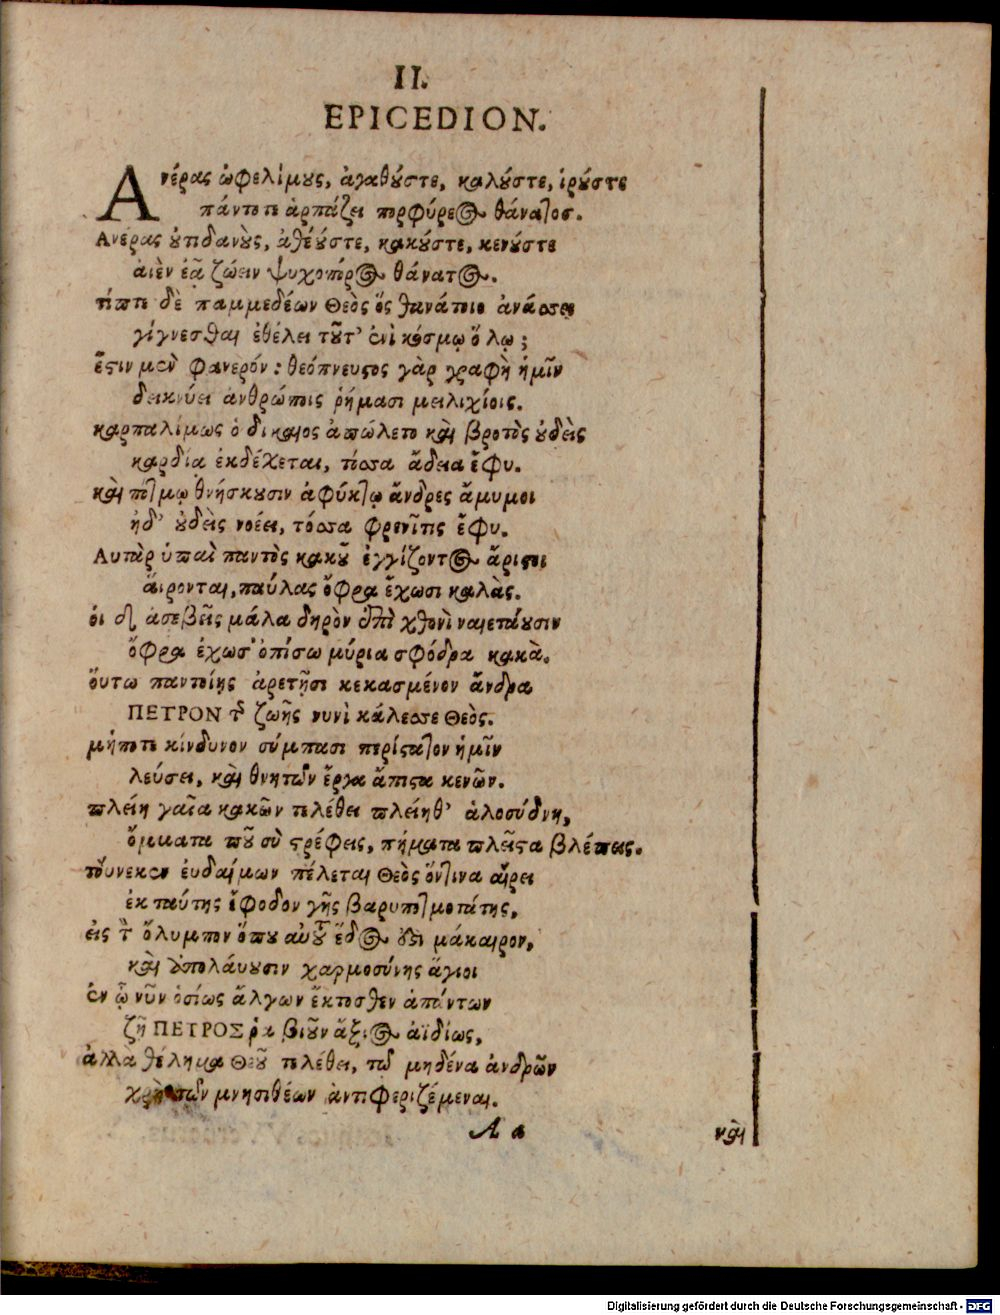 II.
EPICEDION.
Ανέρας ὠφελίμους, ἀγαθούστε, καλούστε, ἱρούστε
πάντοτε ἁρπάζει πορφύρεος θάνατος.
Ανέρας οὐτιδανοὺς, ἀθέουστε, κακούστε, κενούστε
αἰὲν ἐᾷ ζώειν ψυχοπόρος θάνατος.
τίπτε δὲ παμμεδέων Θεὸς ὃς θανάτοιο ἀνάσσει
γίγνεσθαι ἐθέλει τοῦτ' ἐνὶ κόσμῳ ὅλῳ;
ἔστιν μὲν φανερόν: θεόπνευστος γὰρ γραφὴ ἡμῖν
δεικνύει ἀνθρώποις ῥήμασι μειλιχίοις.
καρπαλίμως ὁ δίκαιος ἀπώλετο καὶ βροτὸς οὐδεὶς
καρδίᾳ ἐκδέχεται, τόσσα ἄδεια ἔφυ.
καὶ πότμῳ θνήσκουσιν ἀφύκτῳ ἄνδρες ἄμυμοι
ἠδ' οὐδεὶς νοέει, τόσσα φρενῖτις ἔφυ.
Αυτὰρ ὑπαὶ παντὸς κακοῦ ἐγγίζοντος ἄριστοι
ἄιρονται, παύλας ὄφρα ἔχωσι καλὰς.
ὁι δὲ ἀσεβεῖς μάλα δηρὸν ἐπὶ χθονὶ ναιετάουσιν
ὄφρα ἐχωσ' ὀπίσω μύρια σφόδρα κακὰ.
ὅυτω παντοίῃς ἀρετῇσι κεκασμένον ἄνδρα
ΠΕΤΡΟΝ τῆς ζωῆς νυνὶ κάλεσσε Θεὸς.
μήποτε κίνδυνον σύμπασι περίστατον ἡμῖν
λεύσει, καὶ θνητῶν ἔργα ἄπιστα κενῶν.
πλείη γαῖα κακῶν τελέθει πλείηθ' ἁλοσύδνη,
ὄμματα ποῦ σὺ στρέφεις, πήματα πλεῖστα βλέπεις.
τοὔνεκεν ἐυδαίμων πέλεται Θεὸς ὅντινα αἴρει
ἐκ ταύτης ἔφοδον γῆς βαρυποτμοτάτης,
ἐις τὸν ὄλυμπον ὅπου αὐτοῦ ἕδος ἐστι μάκαιρον,
καὶ ἀπολάυουσιν χαρμοσύνης ἅγιοι
ἐν ᾧ νῦν ὁσίως ἄλγων ἔκτοσθεν ἁπάντων
ζῇ ΠΕΤΡΟΣ ῥα βιοῦν ἄξιος ἀϊδίως,
ἀλλὰ θέλημα Θεοῦ τελέθει, τῷ μηδένα ἀνδρῶν
χρὴ τῶν μνησιθέων ἀντιφεριζέμεναι.
A a
καὶ
Digitalisierung gefördert durch die Deutsche Forschungsgemeinschaft - DFG